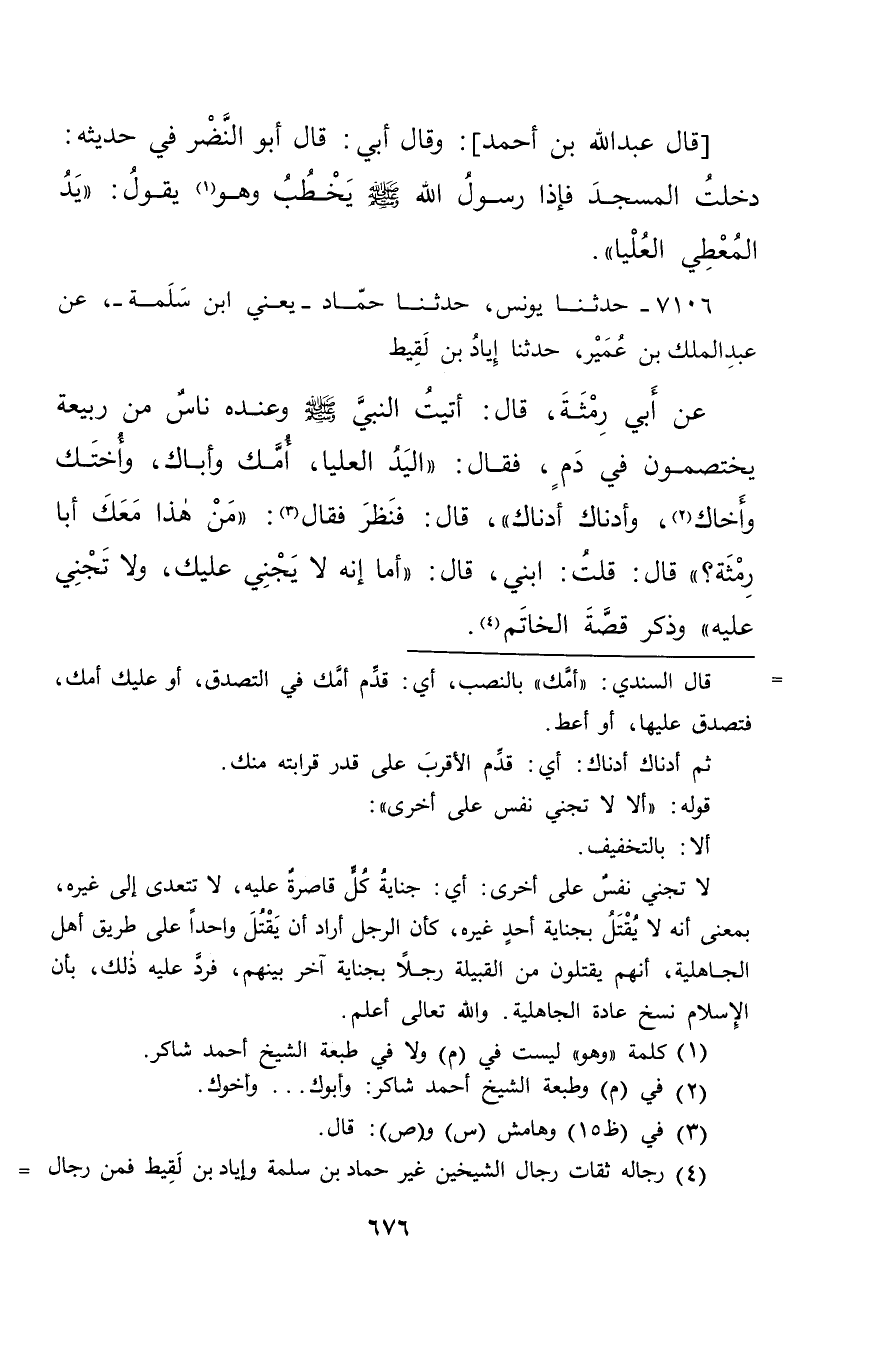 [قال عبدالله بن أحمد]: وقال أبي: قال أبو النَّضْر في حديثه:
دخلتُ المسجدَ فإذا رسولُ الله ﷺ يَخْطُبُ وهو(١) يقولُ: «يَدُ
المُعْطِي العُلْيا».
٧١٠٦ ـ حدثنا يونس، حدثنا حمّاد ـ يعني ابن سَلَمة ـ، عن
عبدِالملك بن عُمَيْر، حدثنا إِيادُ بن لَقِيط
عن أَبي رِمْثَةَ، قال: أتيتُ النبيَّ ﷺ وعنده ناسٌ من ربيعة
يختصمون في دَمٍ، فقال: «اليَدُ العليا، أُمَّك وأباك، وأُختَك
وأَخاك(٢)، وأدناك أدناك»، قال: فنَظرَ فقال(٣): «مَنْ هٰذا مَعَكَ أبا
رِمْثَة؟» قال: قلتُ: ابني، قال: «أما إنه لا يَجْنِي عليك، ولا تَجْنِي
عليه» وذكر قصَّةَ الخاتَم(٤).
= قال السندي: «أمَّك» بالنصب، أي: قدِّم أمَّك في التصدق، أو عليك أمك،
فتصدق عليها، أو أعط.
ثم أدناك أدناك: أي: قدِّم الأقربَ على قدر قرابته منك.
قوله: «ألا لا تجني نفس على أخرى»:
ألا: بالتخفيف.
لا تجني نفسٌ على أخرى: أي: جنايةُ كُلٍّ قاصرةٌ عليه، لا تتعدى إلى غيره،
بمعنى أنه لا يُقْتَلُ بجناية أحدٍ غيره، كأن الرجل أراد أن يَقْتُلَ واحداً على طريق أهل
الجاهلية، أنهم يقتلون من القبيلة رجلاً بجناية آخر بينهم، فردَّ عليه ذٰلك، بأن
الإِسلام نسخ عادة الجاهلية. والله تعالى أعلم.
(١) كلمة «وهو» ليست في (م) ولا في طبعة الشيخ أحمد شاكر.
(٢) في (م) وطبعة الشيخ أحمد شاكر: وأبوك... وأخوك.
(٣) في (ظ١٥) وهامش (س) و(ص): قال.
(٤) رجاله ثقات رجال الشيخين غير حماد بن سلمة وإياد بن لَقِيط فمن رجال =
٦٧٦